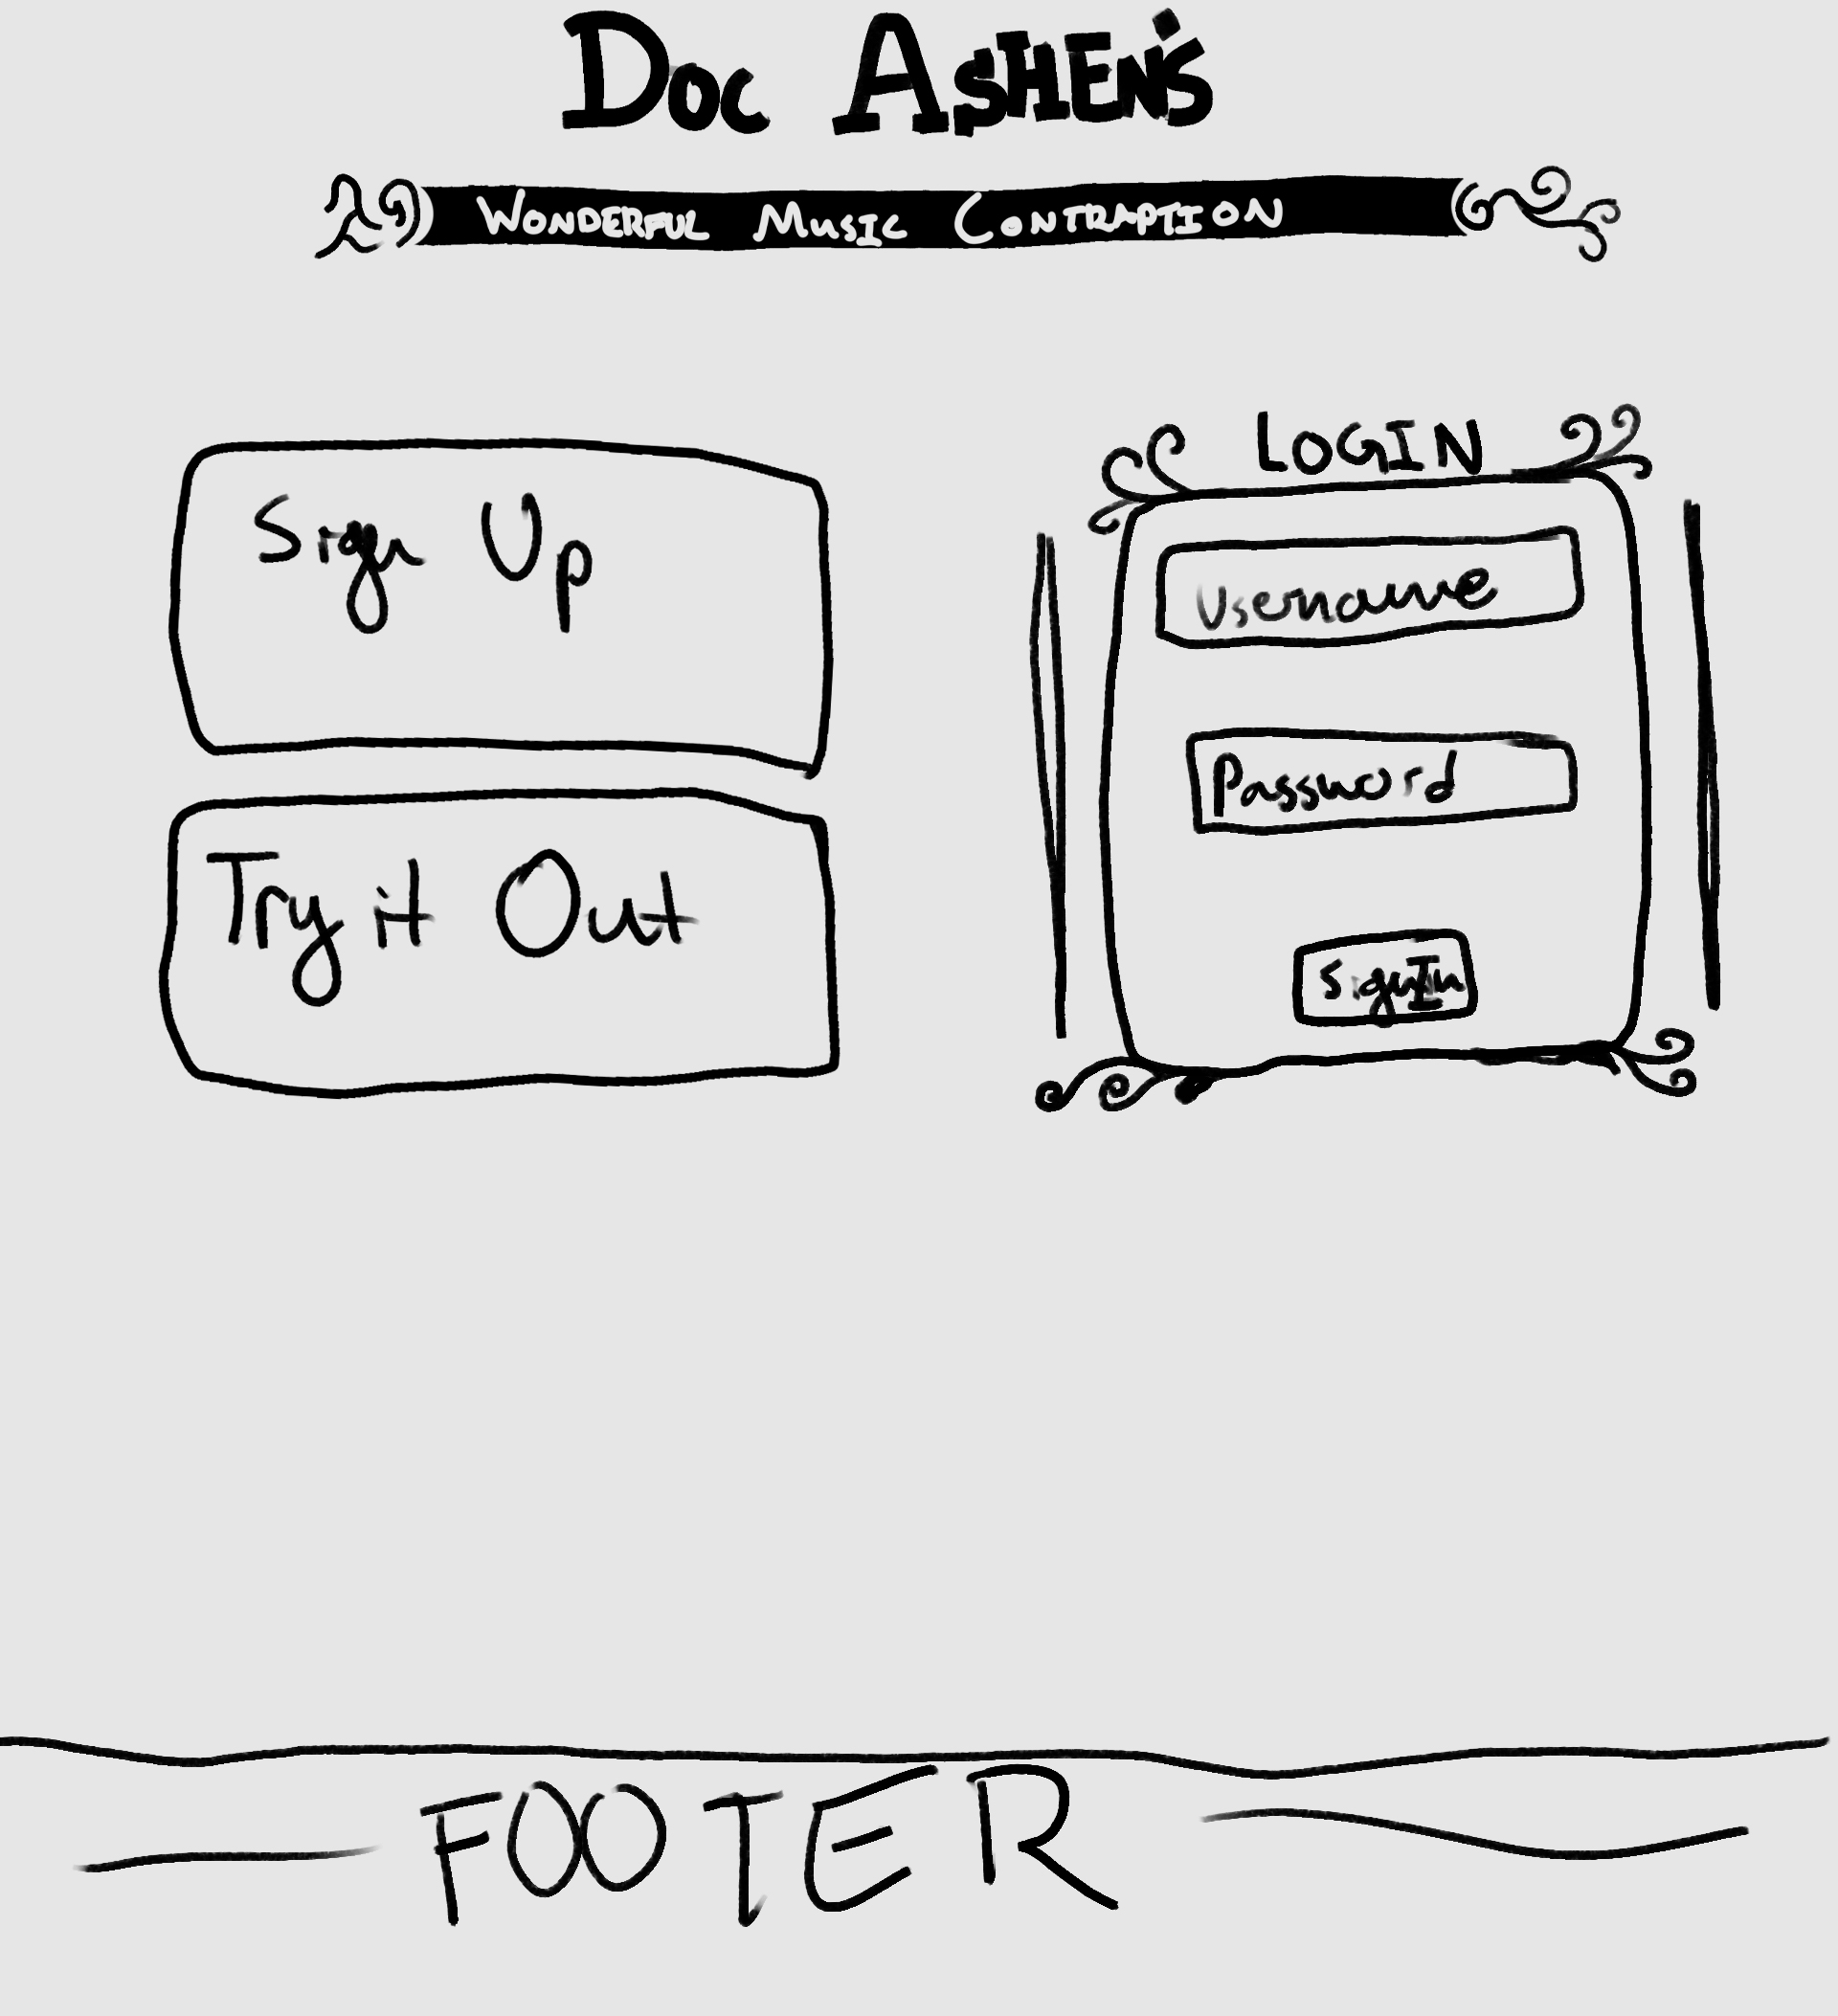 Doc ASHEN'S
WONDERFUL MUSIC CONTRAPTION
Sign Up
Try it Out
LOGIN
Username
Password
Sign In
FOOTER